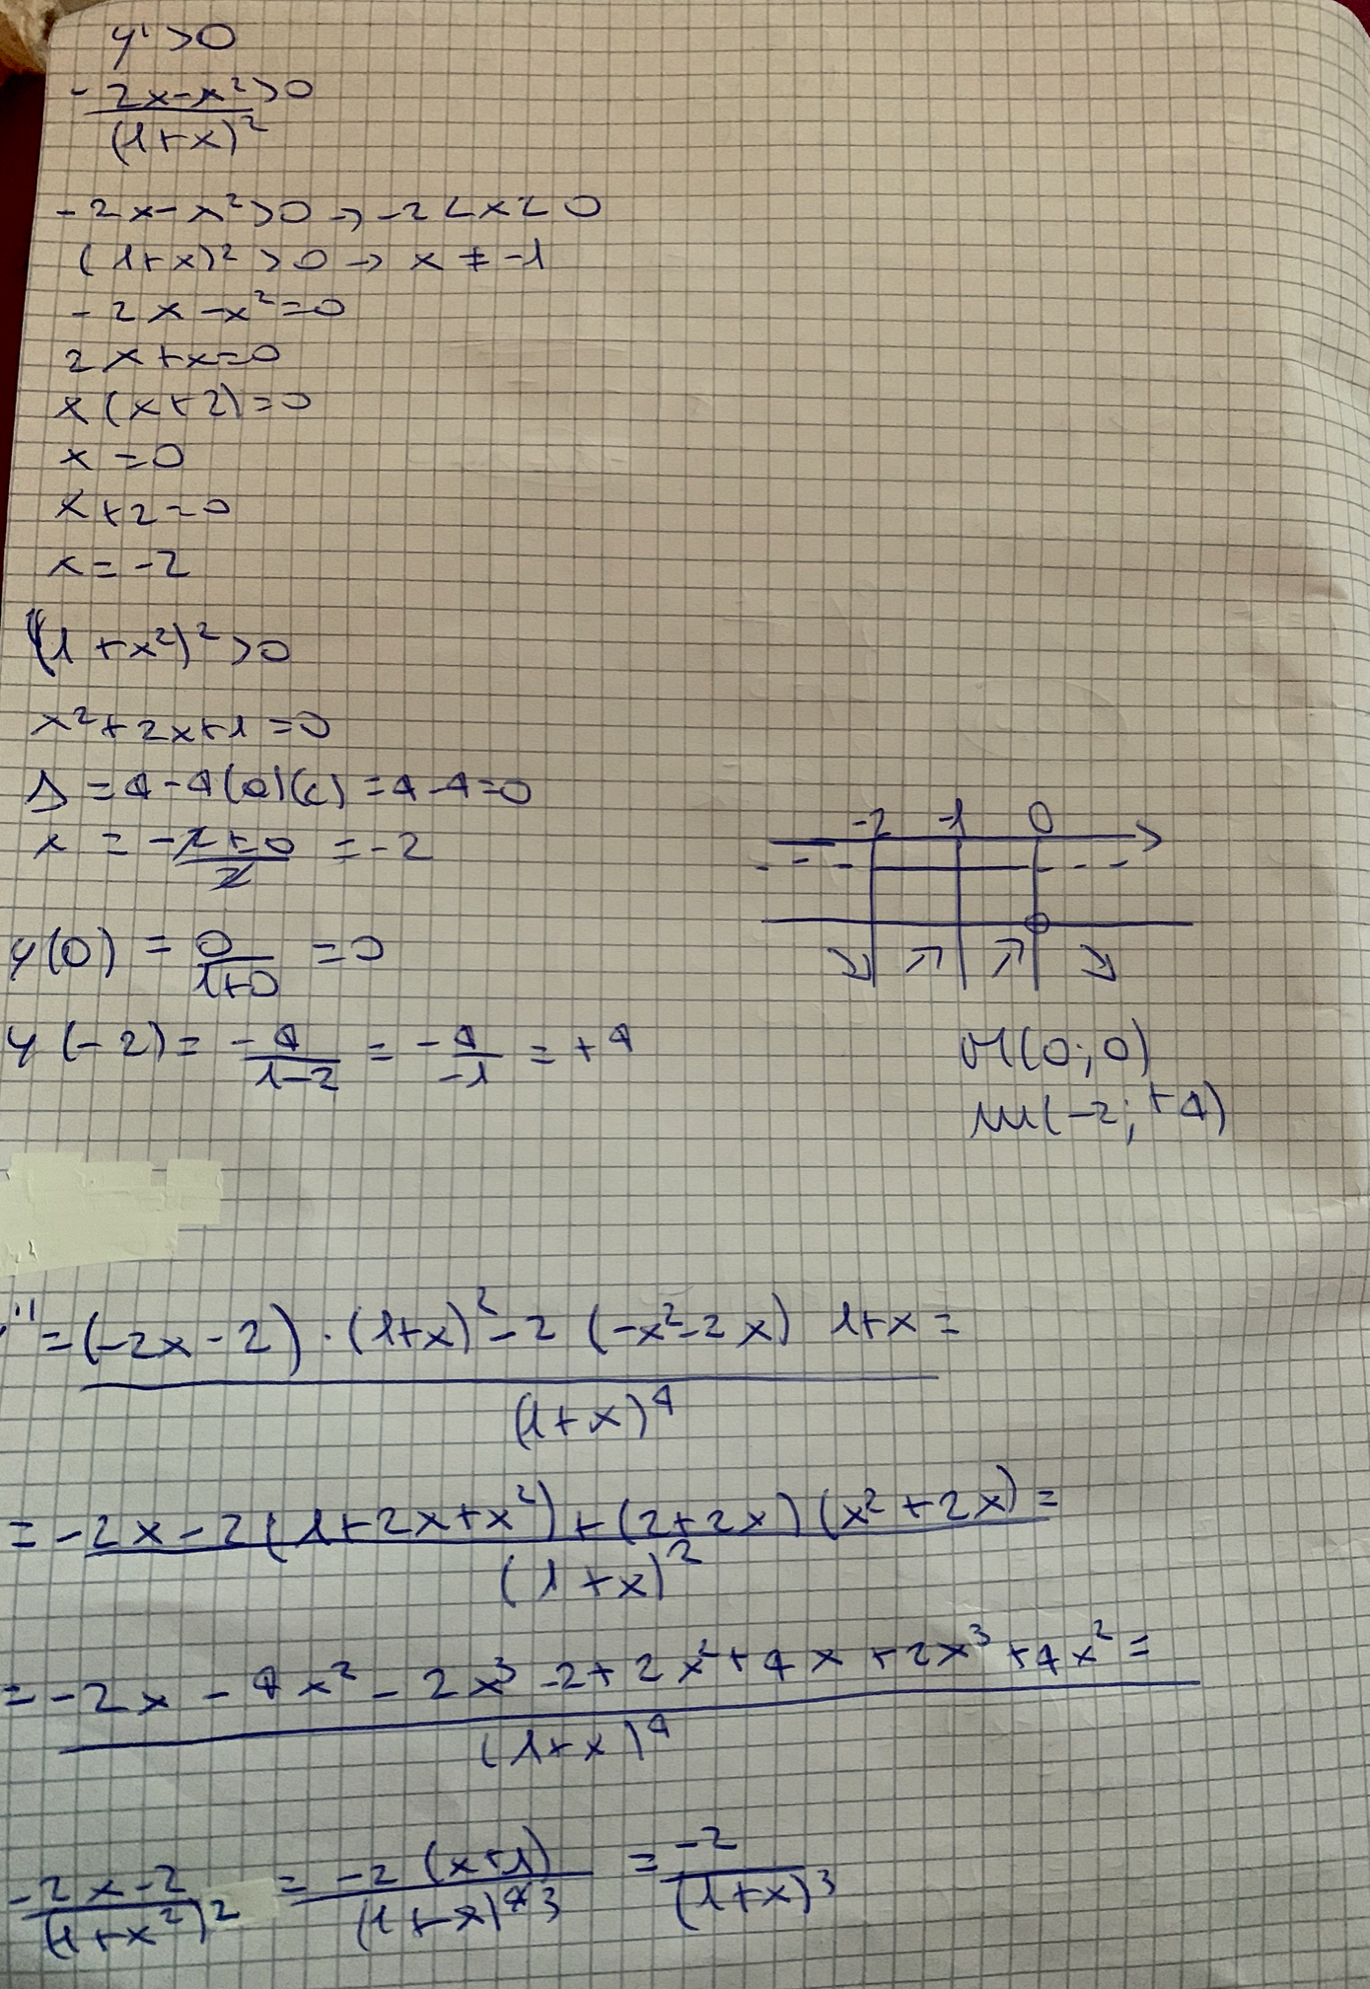 y' >0
- 2x-x²>0
(1+x)²
-2x-x²>0 → -2<x<0
(1+x)²>0 → x ≠ -1
-2x-x²=0
2x+x=0
x(x+2)=0
x=0
x+2=0
x=-2
(1+x²)²>0
x²+2x+1=0
Δ=4-4(a)(c)=4-4=0
x = -2±0/2 = -2
-2 -1 0
y(0) = 0/1+0 = 0
y(-2) = -4/1-2 = -4/-1 = +4
M(0;0)
m(-2;+4)
y''=(-2x-2)·(1+x)²-2(-x²-2x) 1+x=
(1+x)⁴
= -2x-2(1+2x+x²)+(2+2x)(x²+2x)=
(1+x)²
= -2x-4x²-2x³-2+2x²+4x+2x³+4x²=
(1+x)⁴
-2x-2/(1+x²)² = -2(x+1)/(1+x)⁴3 = -2/(1+x)³